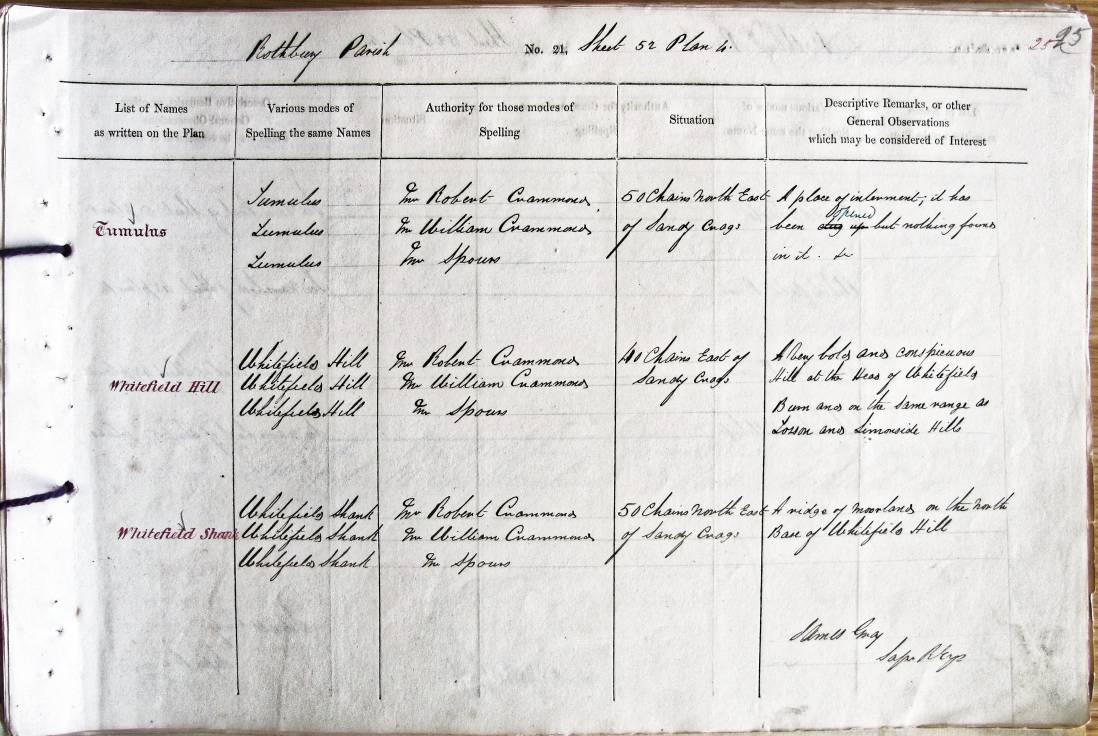 Rothbury Parish No. 21, Sheet 52 Plan 4. 25 25
List of Names
as written on the Plan
Various modes of
Spelling the same Names
Authority for those modes of
Spelling
Situation
Descriptive Remarks, or other
General Observations
which may be considered of Interest
Tumulus
Tumulus
Tumulus
Tumulus
Mr Robert Crammond
Mr William Crammond
Mr Spours
50 Chains North East
of Sandy Crags
A place of interment; it has
opened
been dug up but nothing found
in it. &c
Whitefield Hill
Whitefield Hill
Whitefield Hill
Whitefield Hill
Mr Robert Crammond
Mr William Crammond
Mr Spours
40 Chains East of
Sandy Crags
A Very bold and conspicuous
Hill at the Head of Whitefield
Burn and on the same range as
Tosson and Simonside Hills
Whitefield Shank
Whitefield Shank
Whitefield Shank
Whitefield Shank
Mr Robert Crammond
Mr William Crammond
Mr Spours
50 Chains North East
of Sandy Crags
A ridge of moorland on the North
Base of Whitefield Hill
James Gray
Sapr R Engs